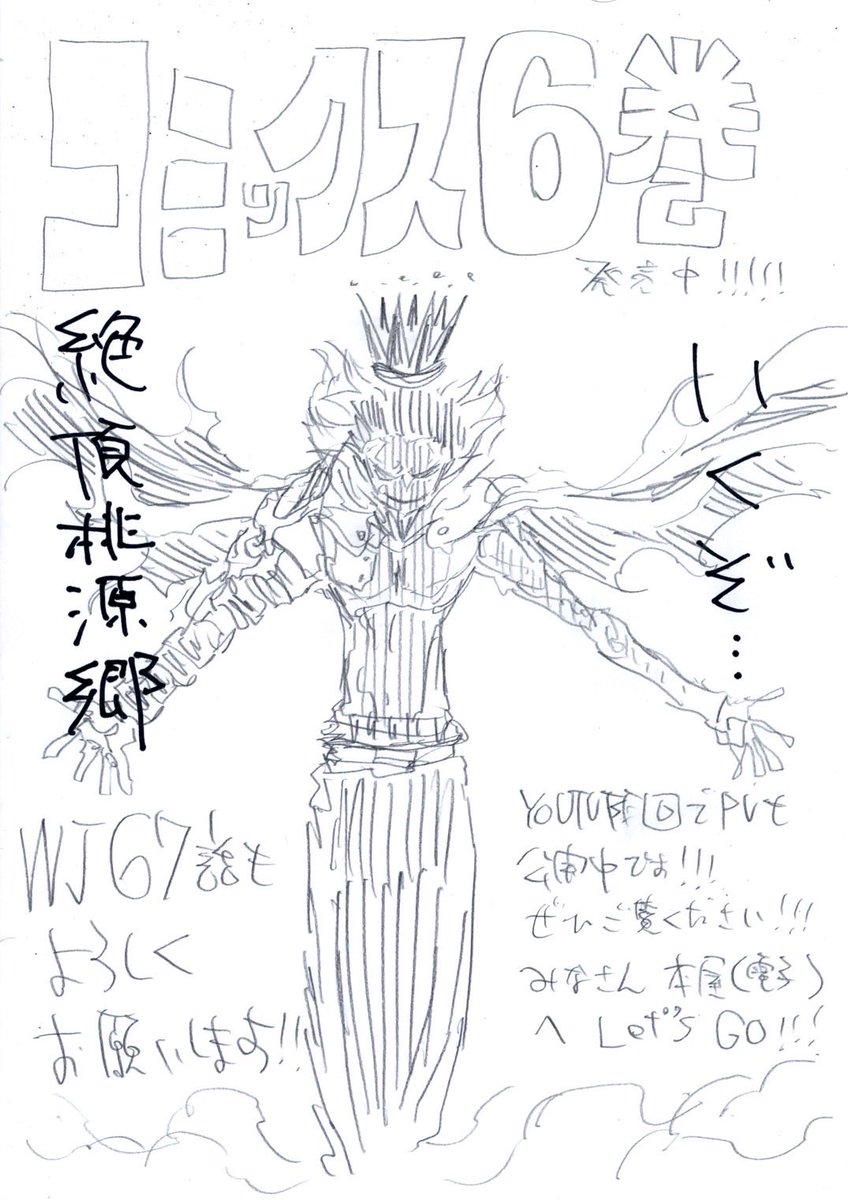 コミックス6巻
発売中!!!!!
いくぞ…
絶頂桃源郷
WJ67話も
よろしく
お願いします!!
でPVも
公開中です!!!
ぜひご覧ください!!!
みなさん 本屋(電子)
へ Let's GO!!!